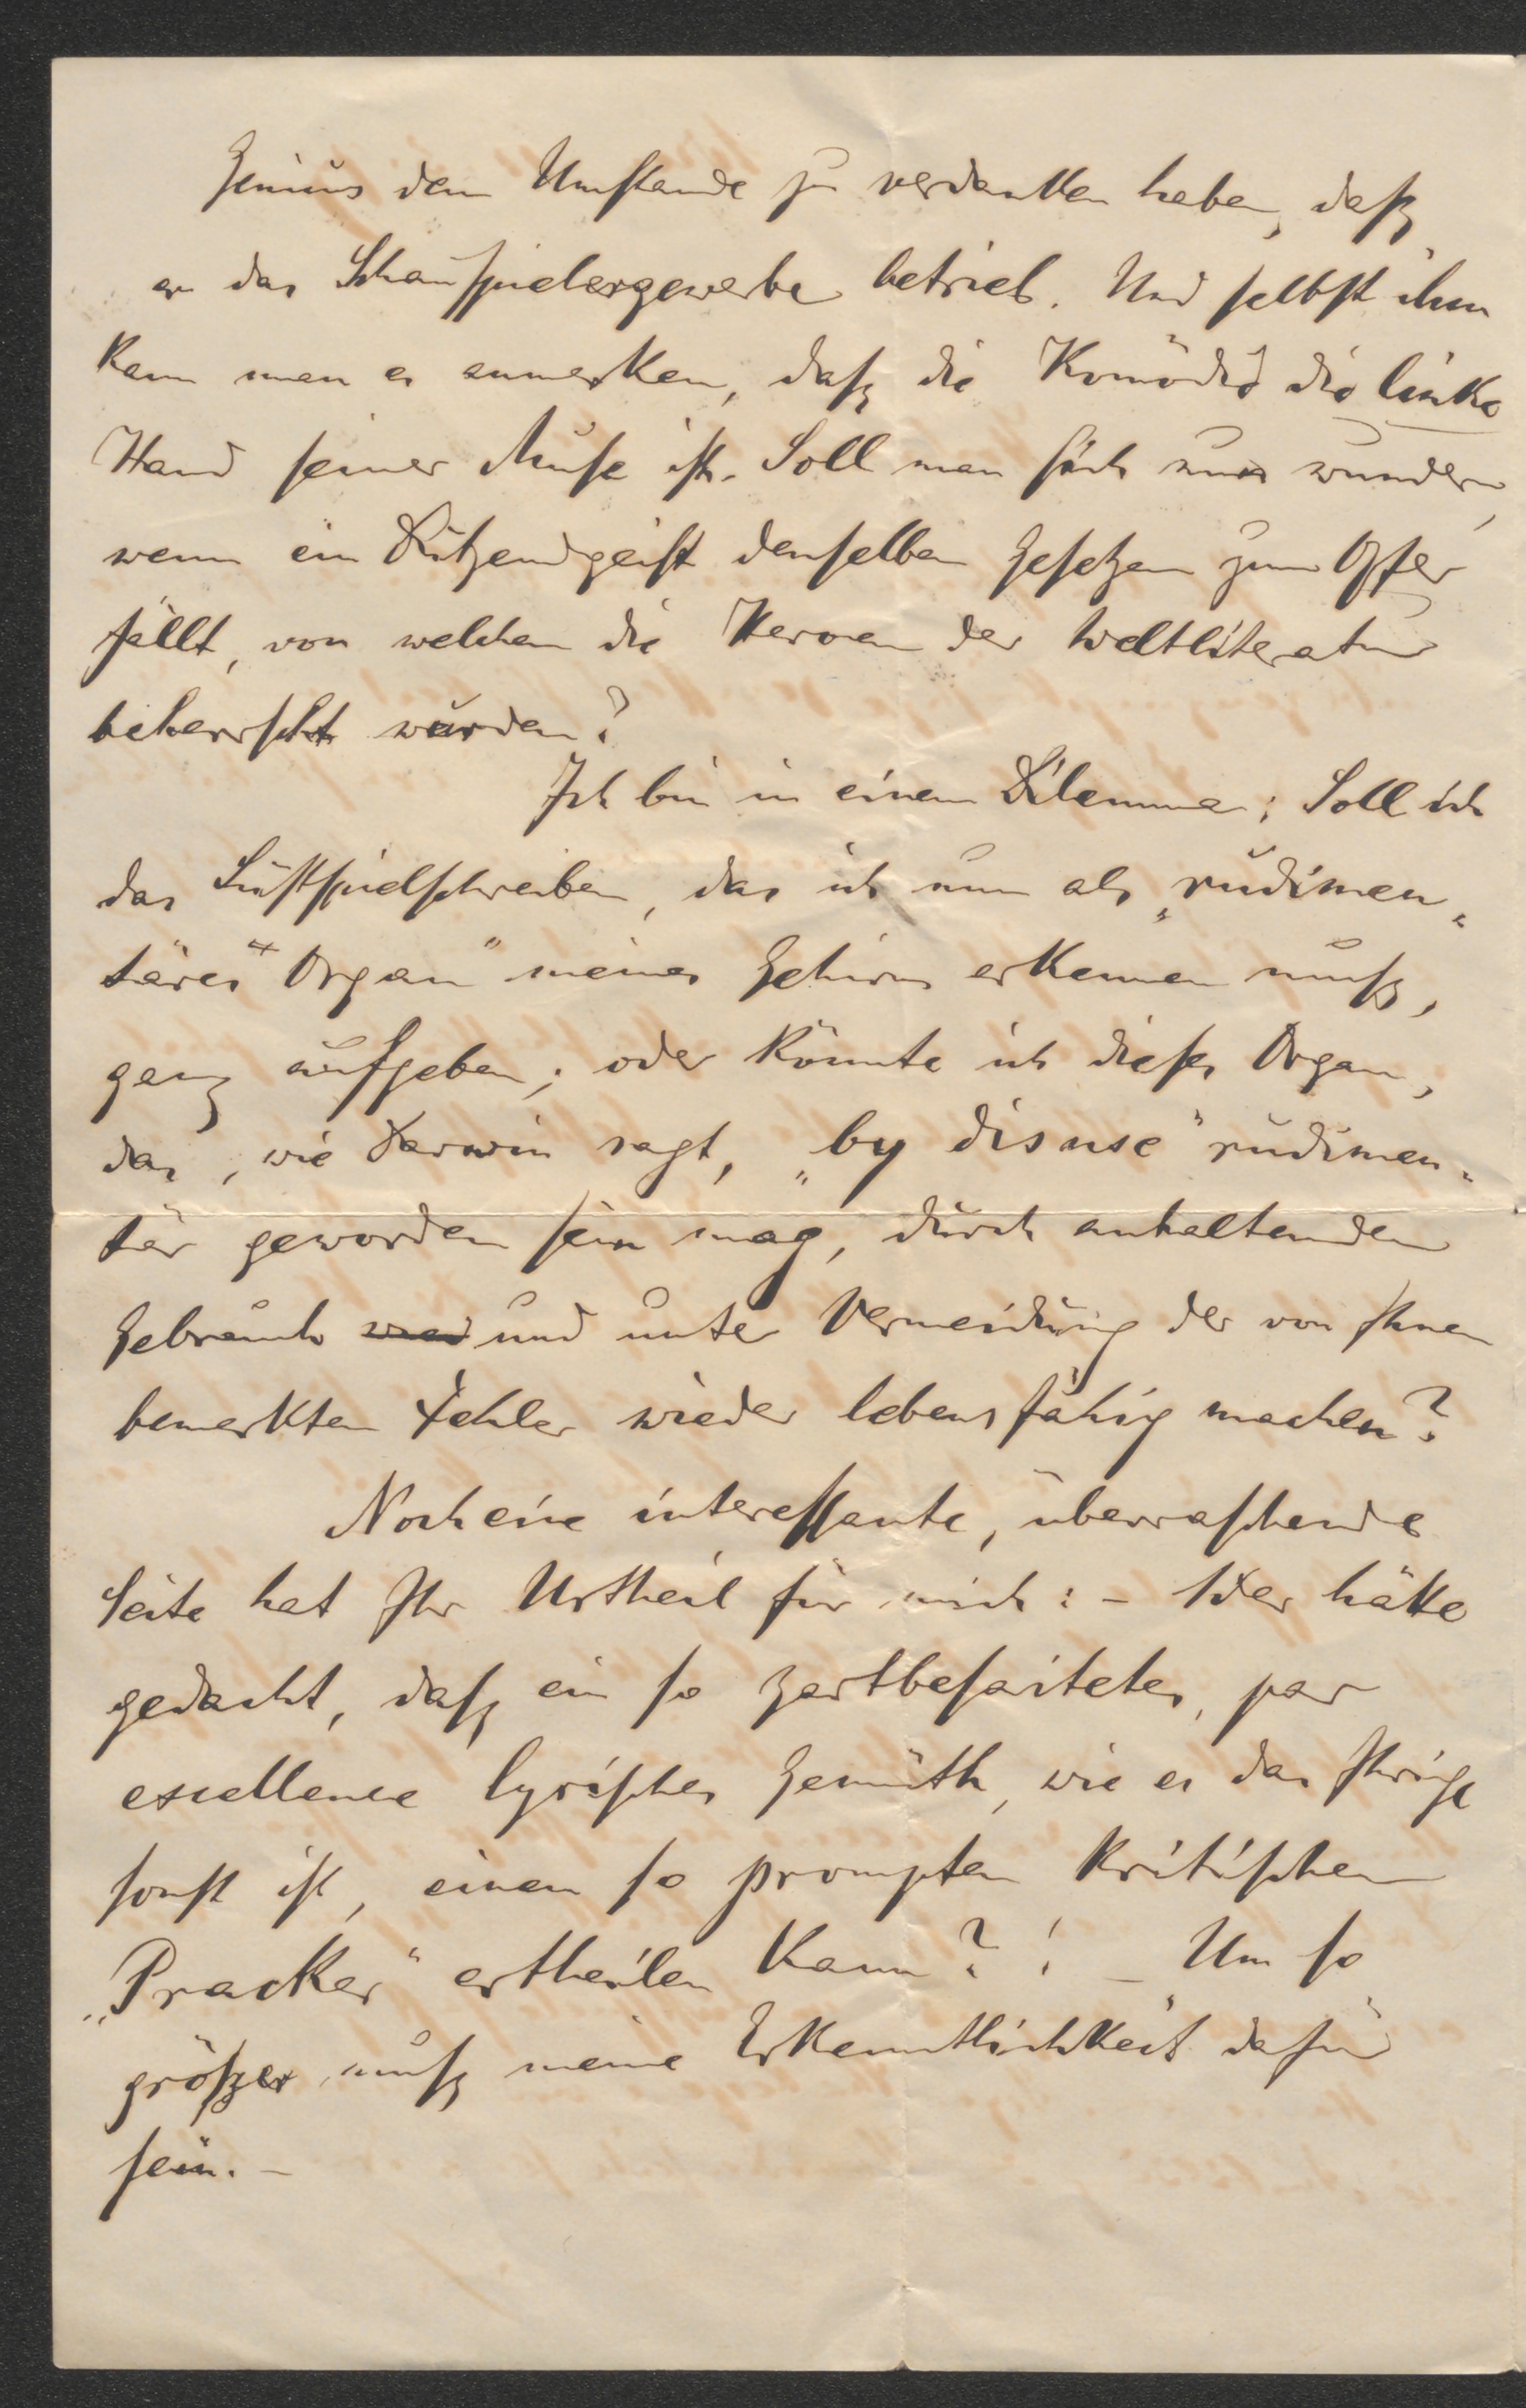 Genius dem Umstande zu verdanken haben, daß
er das Schauspielergewerbe betrieb. Und selbst ihm
kann man es anmerken, daß die Komödie die linke
Hand seiner Muse ist. Soll man sich nun wundern,
wenn ein Dutzendgeist denselben Gesetzen zum Opfer
fällt, von welchen die Heroen der Weltliteratur
beherrscht wurden?
Ich bin in einem Dilemma: Soll ich
das Lustspielschreiben, das ich nun als „rudimen-
täres Organ" meines Gehirns erkennen muß,
ganz aufgeben; oder könnte ich dieses Organ,
das, wie Darwin sagt, „by disuse" rudimen-
tär geworden sein mag, durch anhaltenden
Gebrauch und unter Vermeidung der von Ihnen
bemerkten Fehler wieder lebensfähig machen?
Noch eine interessante, überraschende
Seite hat Ihr Urtheil für mich: – Wer hätte
gedacht, daß ein so zartbesaitetes, par
excellence lyrisches Gemüth, wie es das Ihrige
sonst ist, einen so prompten kritischen
„Pracker" ertheilen kann?! – Um so
größer muß meine Erkenntlichkeit dafür
sein. –